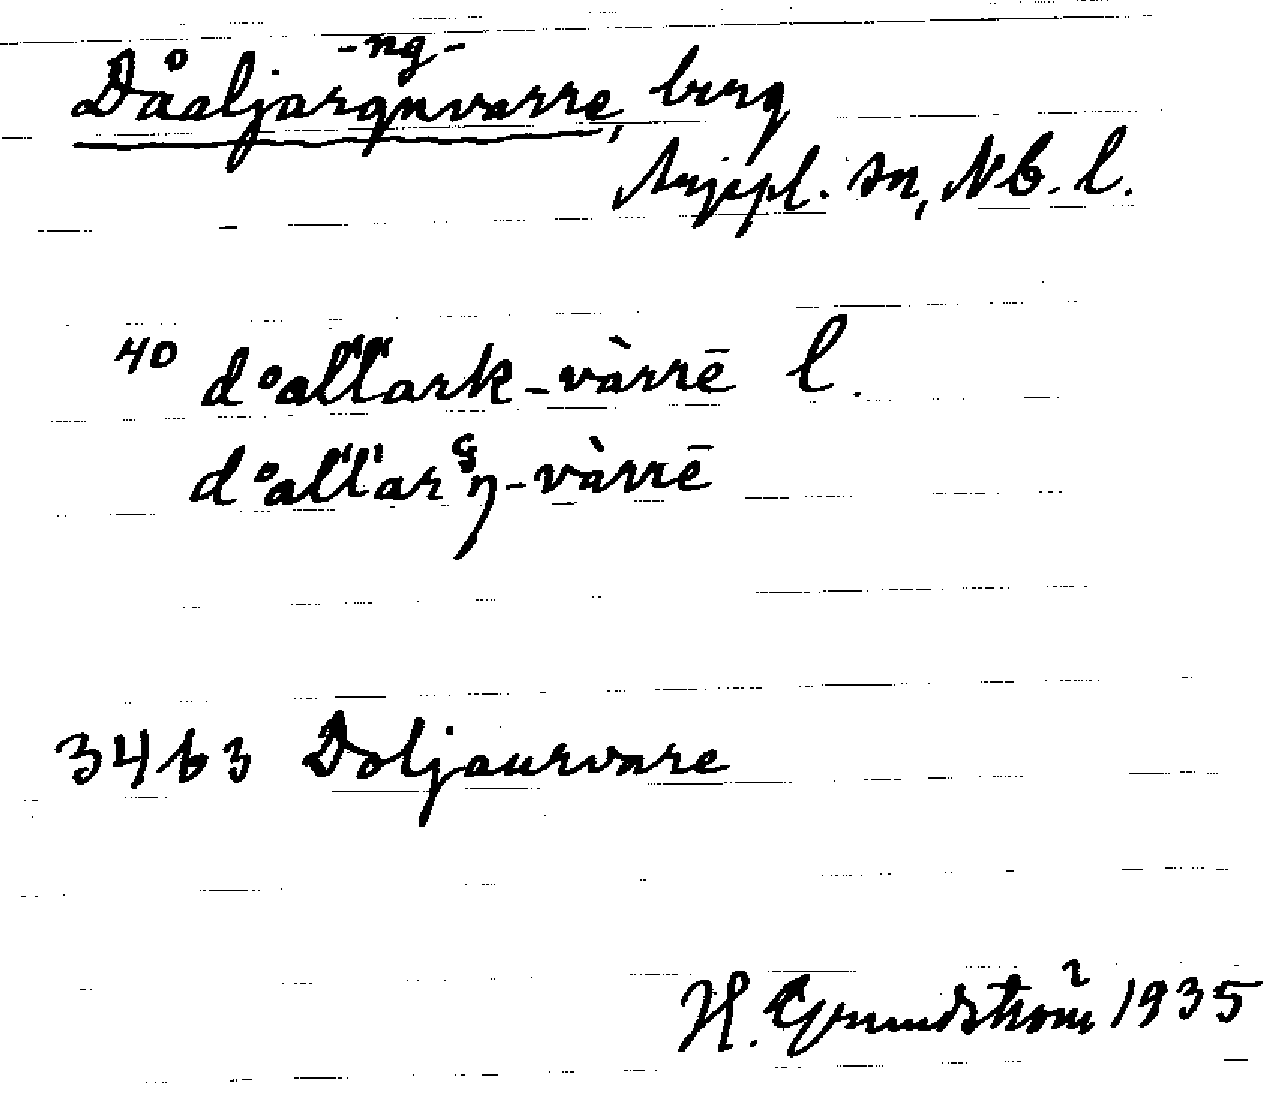 -ng-
Dåaljargnvarre, berg
Arjepl. sn, Nb. l.
40 dᵒal'l'ark-vàrrē l.
dᵒal'l'arᴳŋ-vàrrē
3463 Doljaurvare
H. Grundström 1935